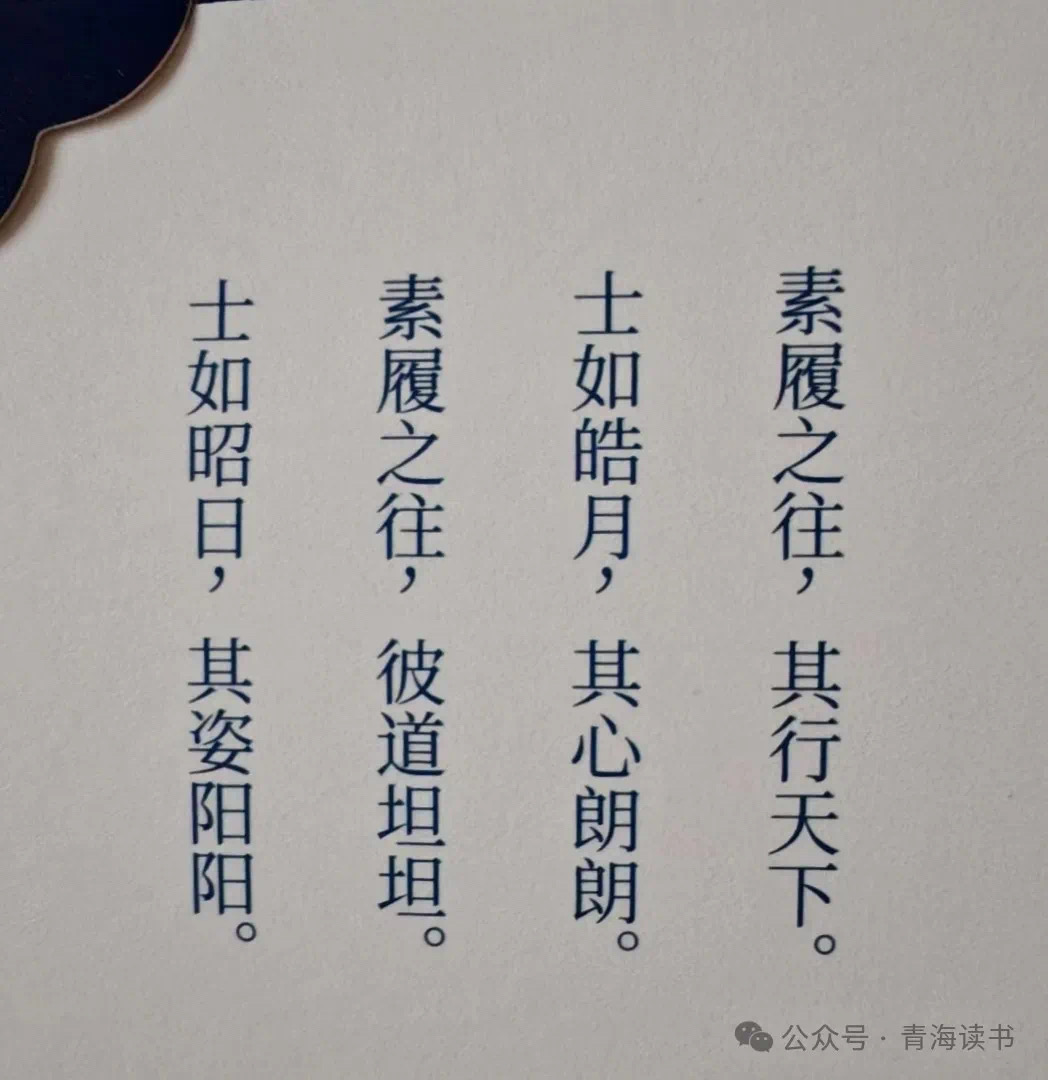 素履之往，其行天下。
士如皓月，其心朗朗。
素履之往，彼道坦坦。
士如昭日，其姿阳阳。
公众号 · 青海读书